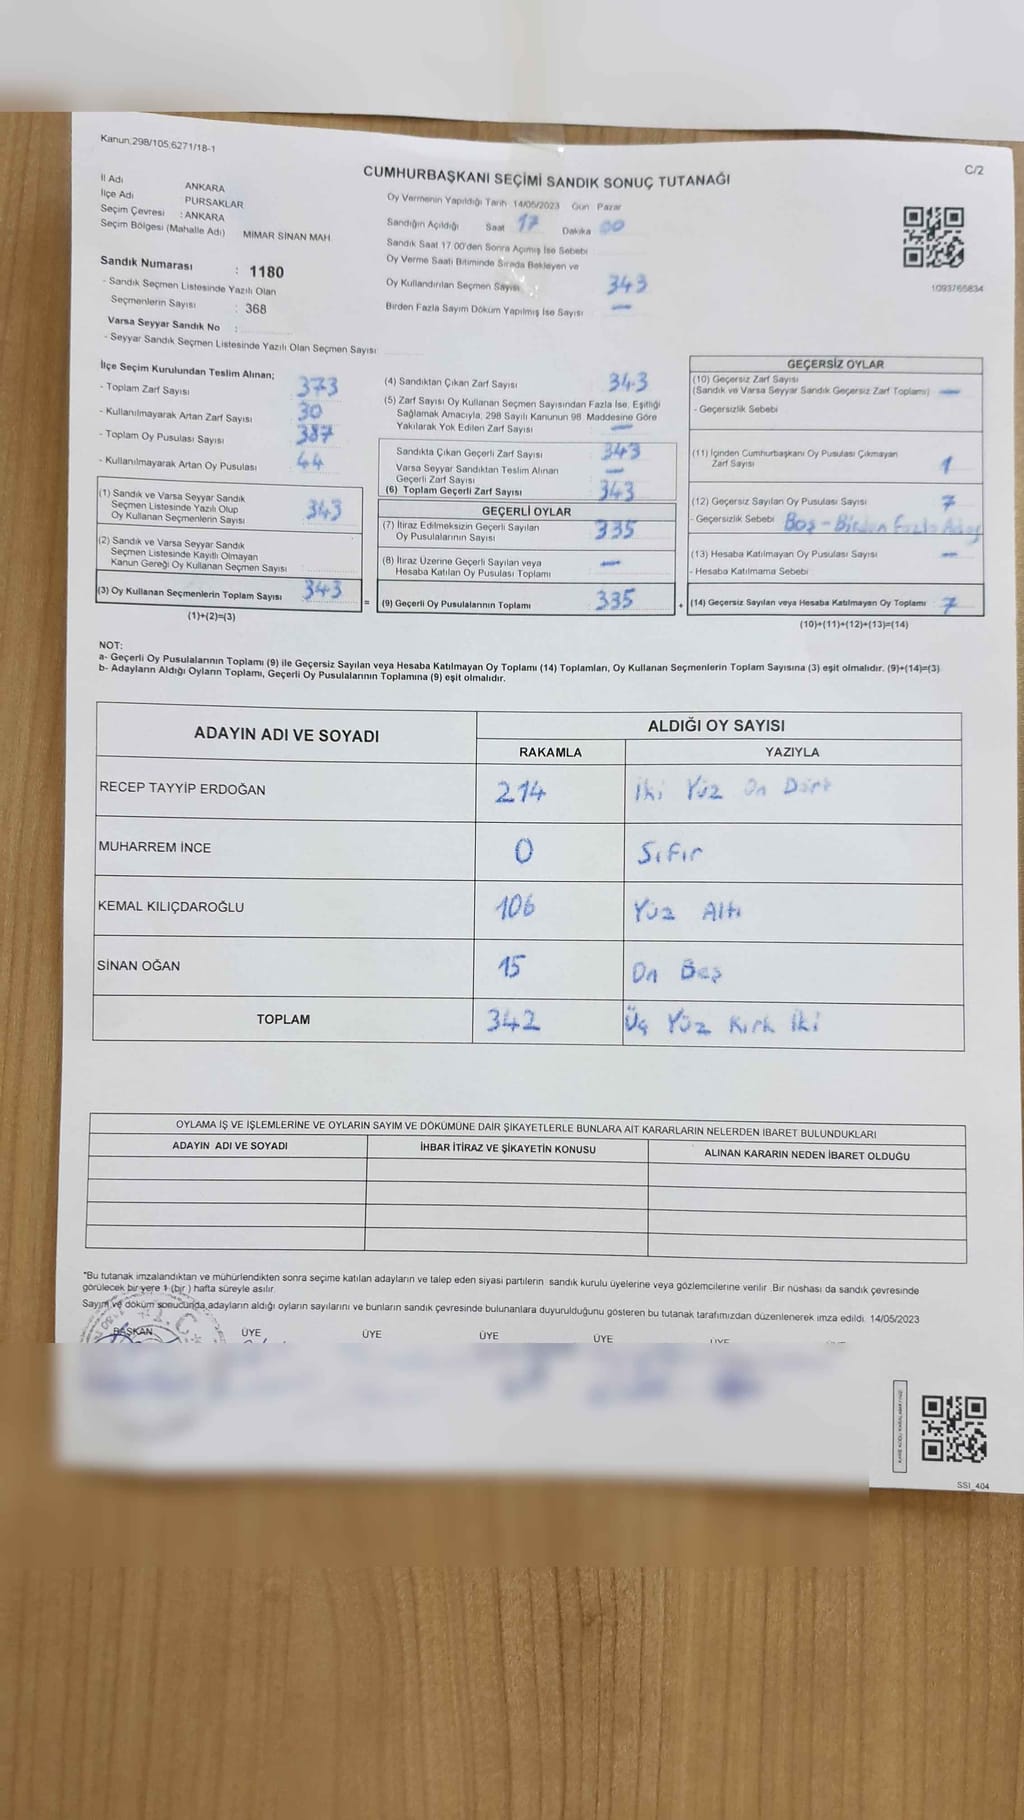 Kanun,298/105,6271/18-1
C/2
CUMHURBAŞKANI SEÇİMİ SANDIK SONUÇ TUTANAĞI
İl Adı ANKARA
İlçe Adı PURSAKLAR
Seçim Çevresi : ANKARA
Seçim Bölgesi (Mahalle Adı) MİMAR SİNAN MAH
Sandık Numarası : 1180
- Sandık Seçmen Listesinde Yazılı Olan
Seçmenlerin Sayısı : 368
Varsa Seyyar Sandık No :
- Seyyar Sandık Seçmen Listesinde Yazılı Olan Seçmen Sayısı
Oy Vermenin Yapıldığı Tarih 14/05/2023 Gün Pazar
Sandığın Açıldığı Saat 17 Dakika 00
Sandık Saat 17.00'den Sonra Açımış İse Sebebi
Oy Verme Saati Bitiminde Sırada Bekleyen ve
Oy Kullandırılan Seçmen Sayısı 343
Birden Fazla Sayım Döküm Yapılmış İse Sayısı —
1093765834
İlçe Seçim Kurulundan Teslim Alınan;
- Toplam Zarf Sayısı 373
- Kullanılmayarak Artan Zarf Sayısı 30
- Toplam Oy Pusulası Sayısı 387
- Kullanılmayarak Artan Oy Pusulası 44
(1) Sandık ve Varsa Seyyar Sandık
Seçmen Listesinde Yazılı Olup
Oy Kullanan Seçmenlerin Sayısı 343
(2) Sandık ve Varsa Seyyar Sandık
Seçmen Listesinde Kayıtlı Olmayan
Kanun Gereği Oy Kullanan Seçmen Sayısı
(3) Oy Kullanan Seçmenlerin Toplam Sayısı 343
(1)+(2)=(3)
(4) Sandıktan Çıkan Zarf Sayısı 343
(5) Zarf Sayısı Oy Kullanan Seçmen Sayısından Fazla İse, Eşitliği
Sağlamak Amacıyla, 298 Sayılı Kanunun 98. Maddesine Göre
Yakılarak Yok Edilen Zarf Sayısı —
Sandıkta Çıkan Geçerli Zarf Sayısı 343
Varsa Seyyar Sandıktan Teslim Alınan
Geçerli Zarf Sayısı —
(6) Toplam Geçerli Zarf Sayısı 343
GEÇERLİ OYLAR
(7) İtiraz Edilmeksizin Geçerli Sayılan
Oy Pusulalarının Sayısı 335
(8) İtiraz Üzerine Geçerli Sayılan veya
Hesaba Katılan Oy Pusulası Toplamı —
= (9) Geçerli Oy Pusulalarının Toplamı 335
GEÇERSİZ OYLAR
(10) Geçersiz Zarf Sayısı
(Sandık ve Varsa Seyyar Sandık Geçersiz Zarf Toplamı) —
- Geçersizlik Sebebi
(11) İçinden Cumhurbaşkanı Oy Pusulası Çıkmayan
Zarf Sayısı 1
(12) Geçersiz Sayılan Oy Pusulası Sayısı 7
- Geçersizlik Sebebi Boş - Birden Fazla Aday
(13) Hesaba Katılmayan Oy Pusulası Sayısı —
- Hesaba Katılmama Sebebi
+ (14) Geçersiz Sayılan veya Hesaba Katılmayan Oy Toplamı 7
(10)+(11)+(12)+(13)=(14)
NOT:
a- Geçerli Oy Pusulalarının Toplamı (9) ile Geçersiz Sayılan veya Hesaba Katılmayan Oy Toplamı (14) Toplamları, Oy Kullanan Seçmenlerin Toplam Sayısına (3) eşit olmalıdır. (9)+(14)=(3)
b- Adayların Aldığı Oyların Toplamı, Geçerli Oy Pusulalarının Toplamına (9) eşit olmalıdır.
ADAYIN ADI VE SOYADI ALDIĞI OY SAYISI
RAKAMLA YAZIYLA
RECEP TAYYİP ERDOĞAN 214 İki Yüz On Dört
MUHARREM İNCE 0 Sıfır
KEMAL KILIÇDAROĞLU 106 Yüz Altı
SİNAN OĞAN 15 On Beş
TOPLAM 342 Üç Yüz Kırk İki
OYLAMA İŞ VE İŞLEMLERİNE VE OYLARIN SAYIM VE DÖKÜMÜNE DAİR ŞİKAYETLERLE BUNLARA AİT KARARLARIN NELERDEN İBARET BULUNDUKLARI
ADAYIN ADI VE SOYADI İHBAR İTİRAZ VE ŞİKAYETİN KONUSU ALINAN KARARIN NEDEN İBARET OLDUĞU
*Bu tutanak imzalandıktan ve mühürlendikten sonra seçime katılan adayların ve talep eden siyasi partilerin sandık kurulu üyelerine veya gözlemcilerine verilir. Bir nüshası da sandık çevresinde
görülecek bir yere 1 (bir) hafta süreyle asılır.
Sayım ve döküm sonucunda,adayların aldığı oyların sayılarını ve bunların sandık çevresinde bulunanlara duyurulduğunu gösteren bu tutanak tarafımızdan düzenlenerek imza edildi. 14/05/2023
BAŞKAN ÜYE ÜYE ÜYE ÜYE ÜYE
T.C.
SSI_404